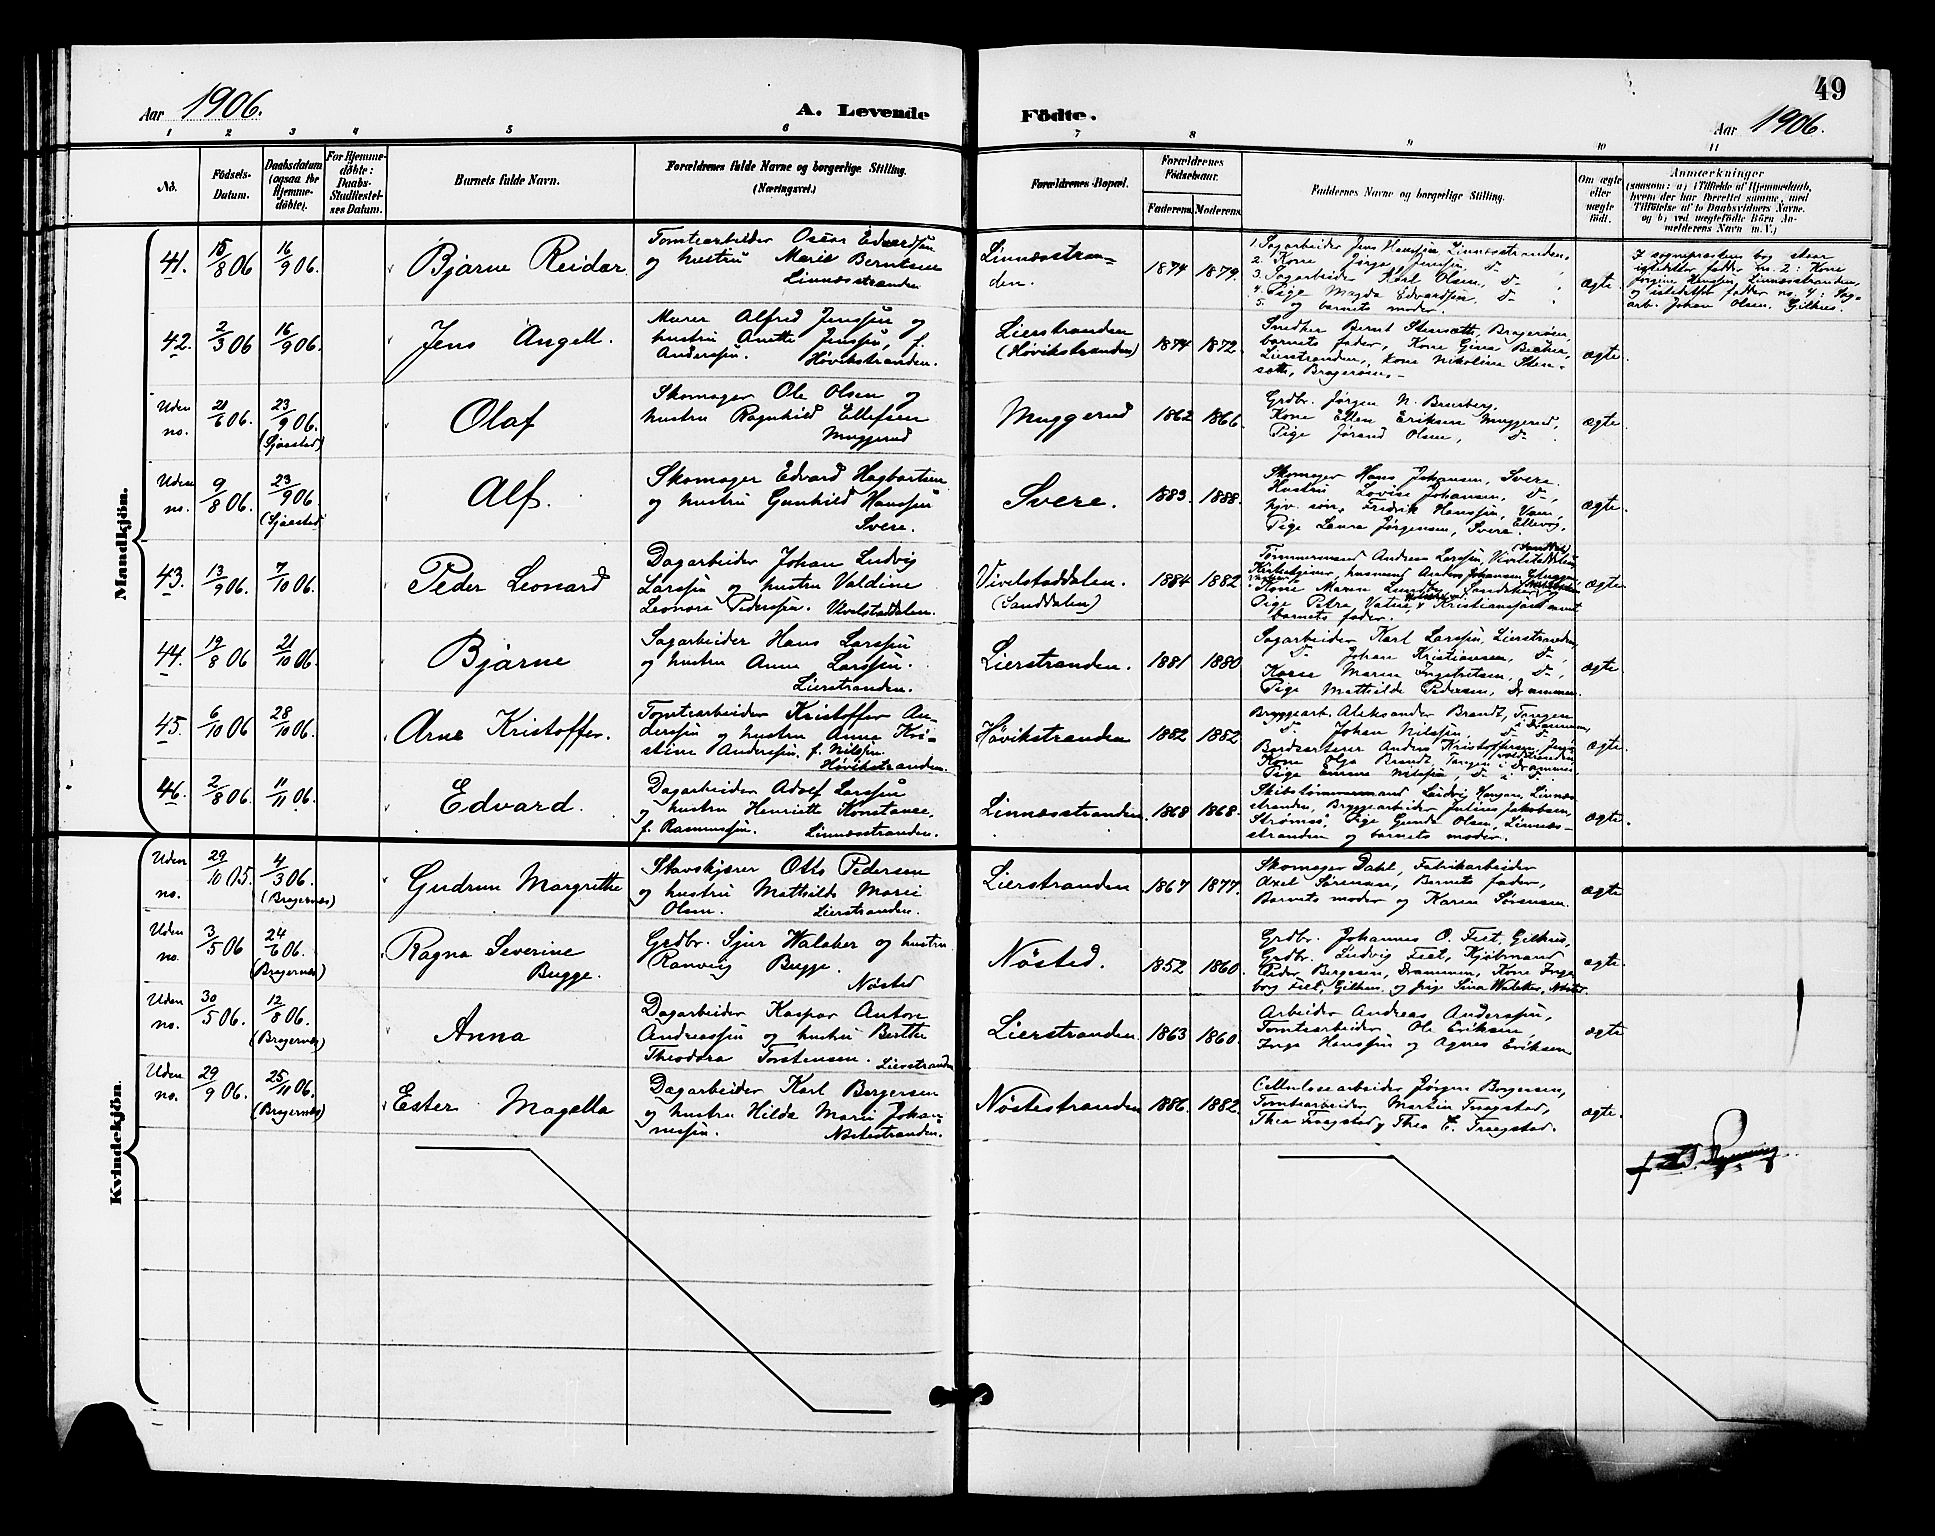 49
Aar 1906.
A. Levende Födte.
Aar 1906.
1 2 3 4 5 6 7 8 9 10 11
No.
Födsels-
Datum.
Daabsdatum
(ogsaa for
Hjemme-
döbte).
For Hjemme-
döbte:
Daabs-
Stadfæstel-
ses Datum.
Barnets fulde Navn.
Forældrenes fulde Navne og borgerlige Stilling.
(Næringsvei.)
Forældrenes Bopæl.
Forældrenes
Födselsaar.
Faderens. Moderens.
Faddernes Navne og borgerlige Stilling.
Om ægte
eller
uægte
födt.
Anmærkninger
(saasom: a) i Tilfælde af Hjemmedaab,
hvem der har forrettet samme, med
Tilföielse af to Daabsvidners Navne.
og b) ved uægtefödte Börn An-
melderens Navn m. V.)
Mandkjön.
41.
15/8 06
16/9 06.
Bjarne Reidar
Tomtearbeider Oscar Edvardsen
og hustru Marie Berntsen
Linnæsstranden
Linnæsstran-
den.
1874 1879.
1. Sagarbeider Jens Hanssen Linnæsstranden,
2. Kone Jørgine Jensen, d-
3. Sagarbeider Karl Olsen, d-
4. Pige Magda Edvardsen, d-
5. og barnets moder.
ægte.
I sogneprestens bog staar
istedetfor fadder nr. 2: Kone
Jørgine Hanssen, Linnæsstranden,
og istedetfor fadder no. 4: Sag-
arb. Johan Olsen, Gilhus.
42.
2/3 06
16/9 06.
Jens Angell.
Murer Alfred Jenssen og
hustru Anette Jenssen, f.
Anderssen. Hövikstranden.
Lierstranden
(Hövikstranden)
1874 1872.
Snedker Bernt Stensætt, Bragerøen,
barnets fader, Kone Gina Becker,
Lierstranden, kone Nikoline Sten-
sætt, Bragerøen.-
ægte.
Uden
no.
21/6 06.
23/9 06.
(Sjaastad)
Olaf
Skomager Ole Olsen og
hustru Ragnhild Ellefsen
Muggerud
Muggerud
1862 1866.
Grdbr. Jørgen N. Bruberg,
Kone Ellen Eriksen Muggerud,
Pige Jørand Olsen, d-
ægte.
Uden
no.
9/8 06.
23/9 06
(Sjaastad)
Alf.
Skomager Edvard Hagbartsen
og hustru Gunhild Hanssen
Svere.
Svere.
1883. 1888.
Skomager Hans Johansen, Svere.
Hustru Lovise Johansen, d-,
hjv. søn, Fredrik Hanssen,
Pige Laura Jørgensen, Svere.
ægte.
43.
13/9 06.
7/10 06.
Peder Leonard
Dagarbeider Johan Ludvig
Larssen og hustru Valdine
Leonore Pederssen. Vivelstaddalen.
Vivelstaddalen.
(Sanddalen)
1884 1882
Tømmermand Andreas Larssen, Vivelstaddalen,
Kone Maren
Pige Petra Kristianssen samt
barnets fader.
ægte.
44.
19/8 06
21/10 06.
Bjarne
Sagarbeider Hans Larssen
og hustru Anna Larssen.
Lierstranden.
Lierstranden.
1881 1880
Sagarbeider Karl Larssen, Lierstranden,
d- Johan Kristiansen, d-,
Kone Maren Ingebretsen, d-,
Pige Mathilde Pedersen, Drammen.
ægte.
45.
6/10 06
28/10 06.
Arne Kristoffer.
Tomtearbeider Kristoffer An-
derssen og hustru Anna Kri-
stine Anderssen, f. Nilssen.
Hövikstranden.
Hövikstranden
1882 1882
Bryggearb. Aleksander Brandt, Tangen
i Drammen,
d- Johan Nilssen, d- d-
Bordskjærer Anders Kristoffersen,
Kone Olga Brandt, Tangen i Drammen
Pige Emma Nilssen, d- i d-
ægte.
46.
2/8 06.
11/11 06.
Edvard.
Dagarbeider Adolf Larssen
og hustru Henriette Konstance,
f. Rasmussen. Linnæsstranden.
Linnæsstranden
1868 1868.
Skibstømmermand Ludvig Hansen, Linnæs-
stranden, Bryggearbeider Julius Jakobsen,
Strømsö, Pige Gunda Olsen, Linnæs-
stranden og barnets moder.
ægte.
Kvindekjön.
Uden
no.
29/10 05.
4/3 06.
(Bragernæs)
Gudrun Margrethe
Stavskjærer Otto Pedersen
og hustru Mathilde Marie
Olsen. Lierstranden.
Lierstranden
1867 1877.
Skomager Dahl, Fabrikarbeider
Axel Sørensen, Barnets fader,
Barnets moder og Karen Sørensen.
ægte
Uden
no.
3/5 06
24/6 06.
(Bragernæs)
Ragna Severine
Bugge.
Grdbr. Sjur Walaker og hustru
Ranveig Bugge.
Nösted
Nösted.
1852 1860.
Grdbr. Johannes O. Fiet, Gilhus,
Grdbr. Ludvig Fiet, Kjöbmand
Peder Bergesen, Drammen, Kone Inge-
borg Fiet, Gilhus og pige Sina Walaker, Nösted.
ægte.
Uden
no.
30/5 06.
12/8 06.
(Bragernæs)
Anna
Dagarbeider Kaspar Anton
Andreassen og hustru Berthe
Theodora Torstensen. Lierstranden
Lierstranden
1863 1860.
Arbeider Andreas Anderssen,
Tomtearbeider Ole Eriksen,
Inga Hanssen og Agnes Eriksen
ægte
Uden
no.
29/9 06.
25/11 06.
(Bragernæs)
Ester Magella
Dagarbeider Karl Borgersen
og hustru Hilda Marie Johan-
nessen. Nöstestranden.
Nöstestranden
1886. 1882.
Cellulosearbeider Jörgen Borgersen,
Tomtearbeider Martin Traagstad,
Thea Traagstad, Thea C. Traagstad.
ægte.